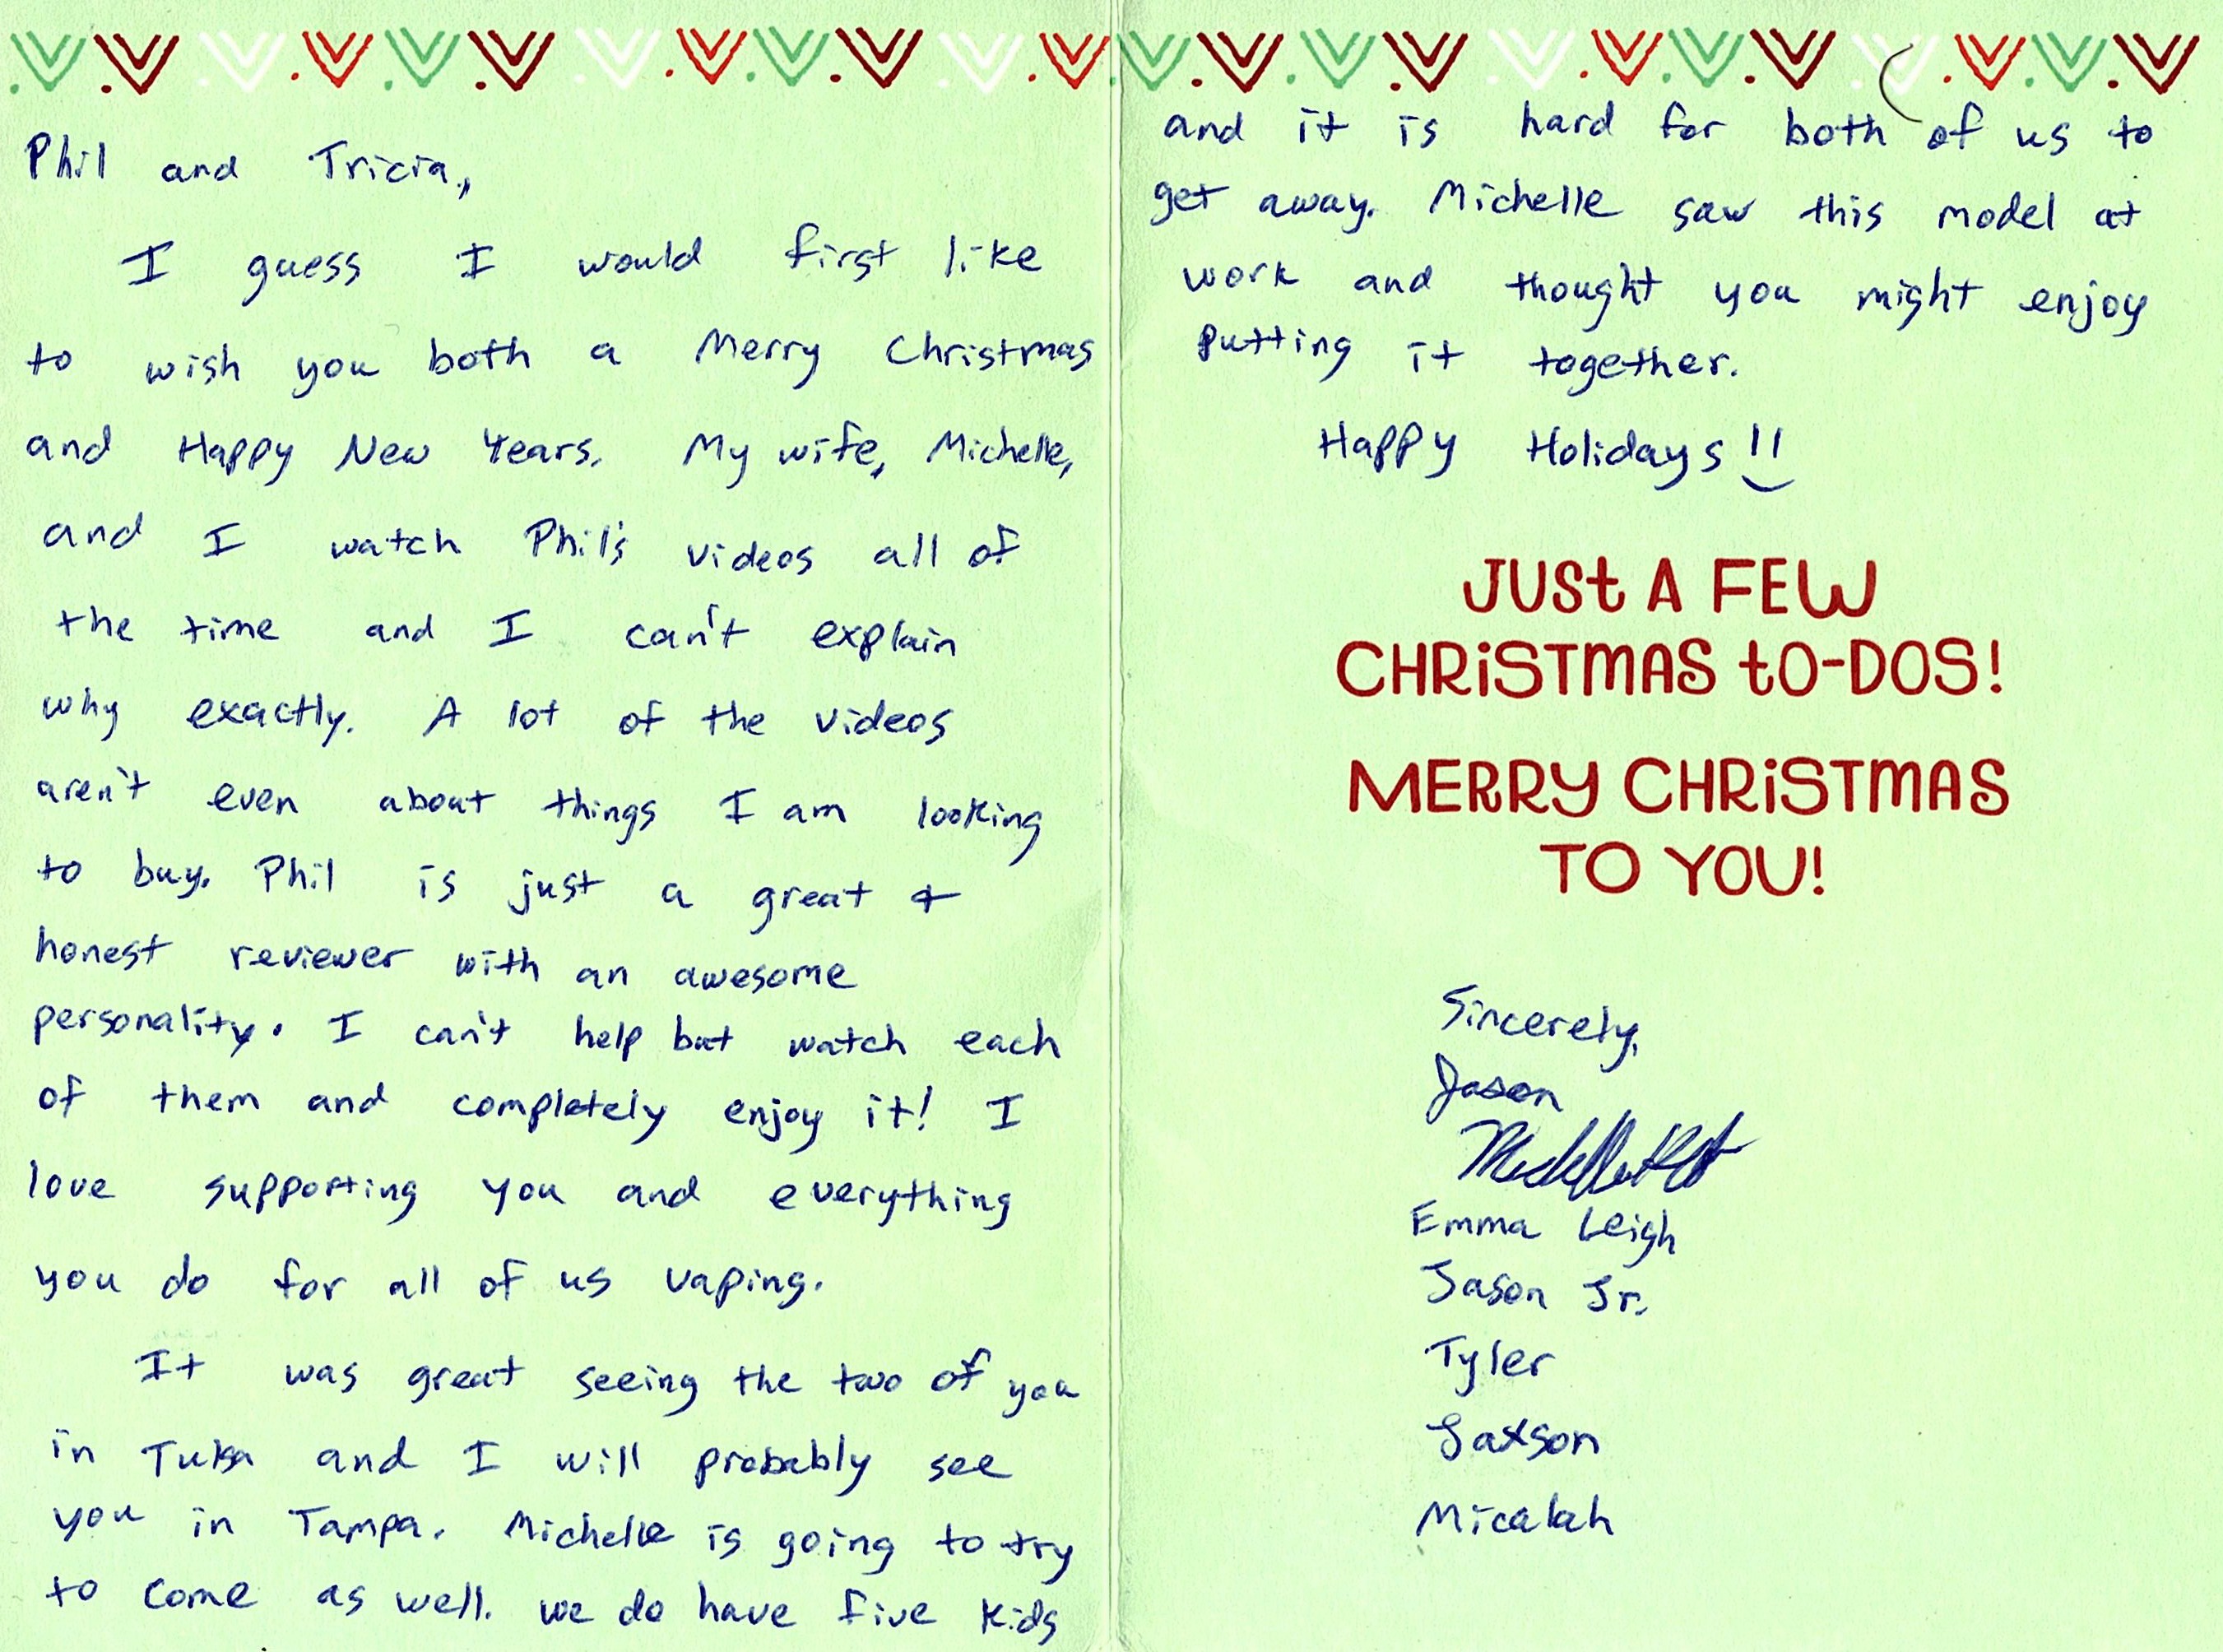 Phil and Tricia,
I guess I would first like
to wish you both a Merry Christmas
and Happy New Years. My wife, Michelle,
and I watch Phil's videos all of
the time and I can't explain
why exactly. A lot of the videos
aren't even about things I am looking
to buy. Phil is just a great &
honest reviewer with an awesome
personality. I can't help but watch each
of them and completely enjoy it! I
love supporting you and everything
you do for all of us vaping.
It was great seeing the two of you
in Tulsa and I will probably see
you in Tampa. Michelle is going to try
to come as well. We do have five kids
and it is hard for both of us to
get away. Michelle saw this model at
work and thought you might enjoy
putting it together.
Happy Holidays!!
JUST A FEW
CHRISTMAS TO-DOS!
MERRY CHRISTMAS
TO YOU!
Sincerely,
Jason
Michelle
Emma Leigh
Jason Jr.
Tyler
Jaxson
Micalah